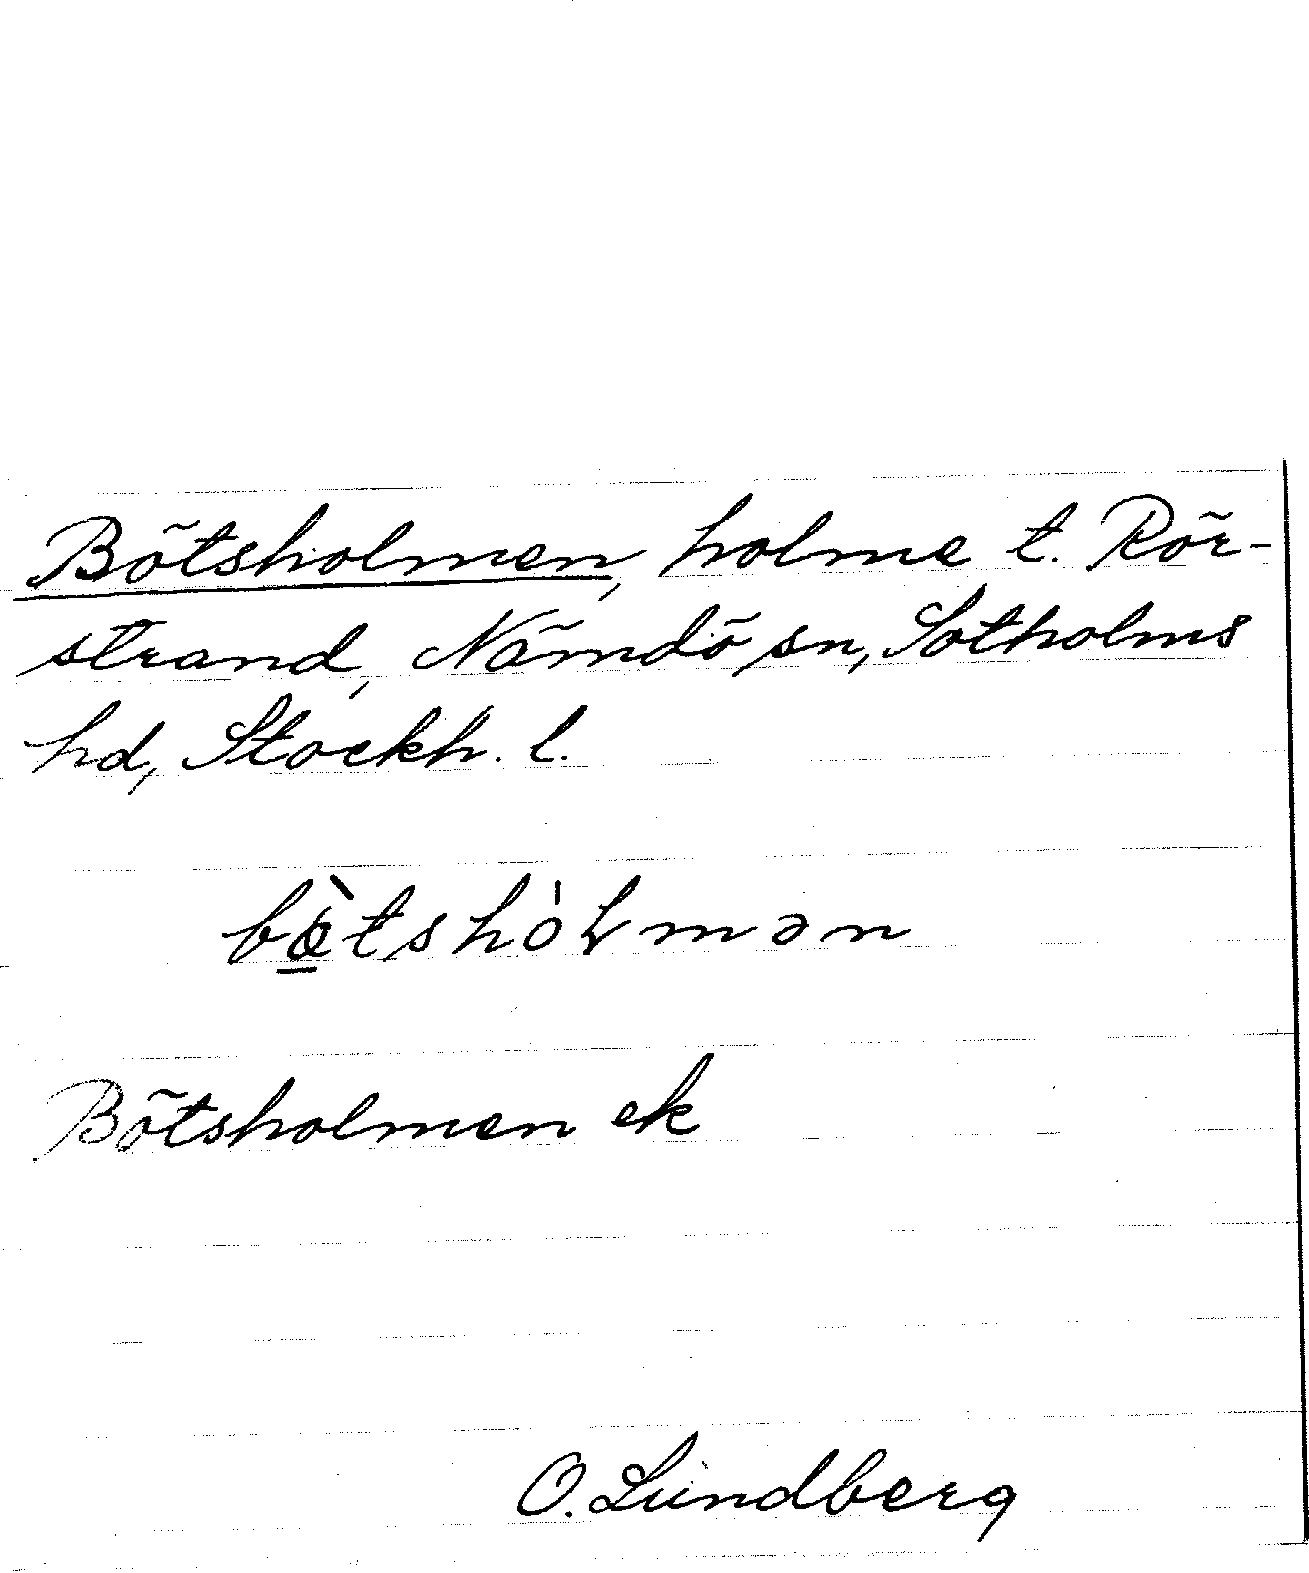 Bötsholmen, holme t. Rör-
strand, Nämdö sn, Sotholms
hd, Stockh. l.
Bötsholmen ek
O. Lundberg